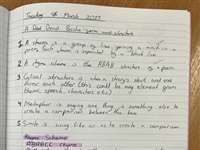 Tuesday March 2023
A Dead Dead
1. A stanza is a group of lines forming a unit in a
poem. Each stanza is separated by a line break.
2. A rhyme scheme is the ABAB structure of a poem
3. Cyclical structure is when a story's start and end
mirror each other (this could be any element from
theme, speech, characters etc)
4. Metaphor is saying one thing is something else to
create a comparison between the two
5. Simile is using like or as to create a comparison
Rhyme Scheme
rhyme